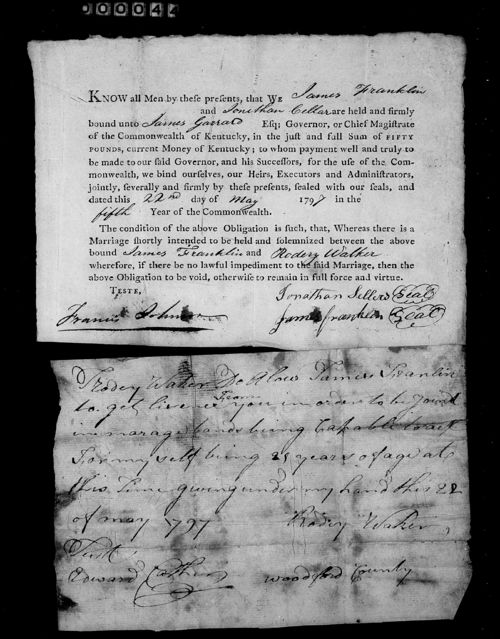 00044
KNOW all Men by these presents, that WE James Franklin
and Jonithan Cellar are held and firmly
bound unto James Garrard Esq; Governor, or Chief Magistrate
of the Commonwealth of Kentucky, in the just and full Sum of FIFTY
POUNDS, current Money of Kentucky; to whom payment well and truly to
be made to our said Governor, and his Successors, for the use of the Com-
monwealth, we bind ourselves, our Heirs, Executors and Administrators,
jointly, severally and firmly by these presents, sealed with our seals, and
dated this 22nd day of May 1797 in the
fifth Year of the Commonwealth.
The condition of the above Obligation is such, that, Whereas there is a
Marriage shortly intended to be held and solemnized between the above
bound James Franklin and Rodery Walker
wherefore, if there be no lawful impediment to the said Marriage, then the
above Obligation to be void, otherwise to remain in full force and virtue.
TESTE,
Jonathan Sellers Seal
Francis Johnson James franklin Seal
I Rodey Waker Do Alow James Franlin
to get licence from you in order to be Joind
in marage bands being Capable to act
For my self being 21 years of age at
this Time giveng under my hand this 22
of may 1797 Rodey Waker
Test
Edward Cather woodford County